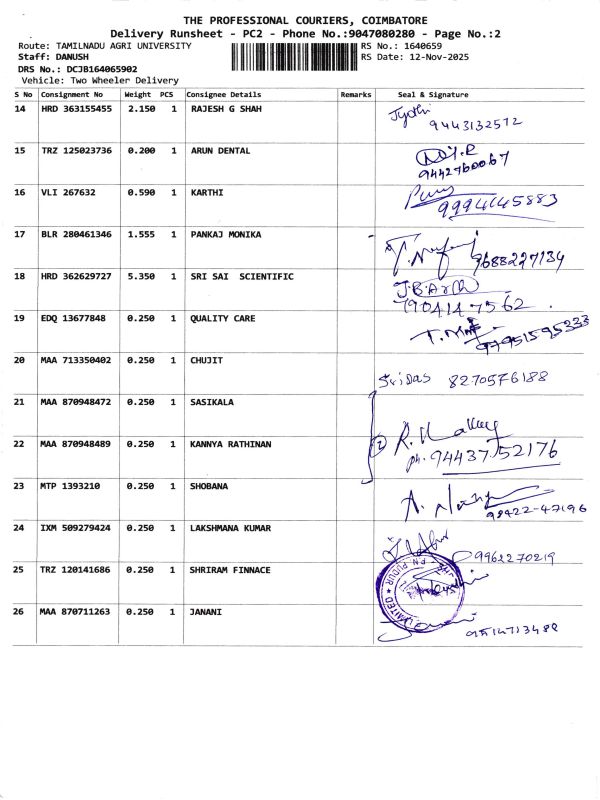 THE PROFESSIONAL COURIERS, COIMBATORE
Delivery Runsheet - PC2 - Phone No.:9047080280 - Page No.:2
Route: TAMILNADU AGRI UNIVERSITY RS No.: 1640659
Staff: DANUSH RS Date: 12-Nov-2025
DRS No.: DCJB164065902
Vehicle: Two Wheeler Delivery
S No Consignment No Weight PCS Consignee Details Remarks Seal & Signature
14 HRD 363155455 2.150 1 RAJESH G SHAH Jyothi
9443132572
15 TRZ 125023736 0.200 1 ARUN DENTAL
9442760067
16 VLI 267632 0.590 1 KARTHI
9994145883
17 BLR 280461346 1.555 1 PANKAJ MONIKA
9688227134
18 HRD 362629727 5.350 1 SRI SAI SCIENTIFIC J.B.
7904147562
19 EDQ 13677848 0.250 1 QUALITY CARE
20 MAA 713350402 0.250 1 CHUJIT
Sridas 8270576188
21 MAA 870948472 0.250 1 SASIKALA
22 MAA 870948489 0.250 1 KANNYA RATHINAN
ph. 94437 52176
23 MTP 1393210 0.250 1 SHOBANA
98422-47196
24 IXM 509279424 0.250 1 LAKSHMANA KUMAR
9962270219
25 TRZ 120141686 0.250 1 SHRIRAM FINNACE
26 MAA 870711263 0.250 1 JANANI
9514713488